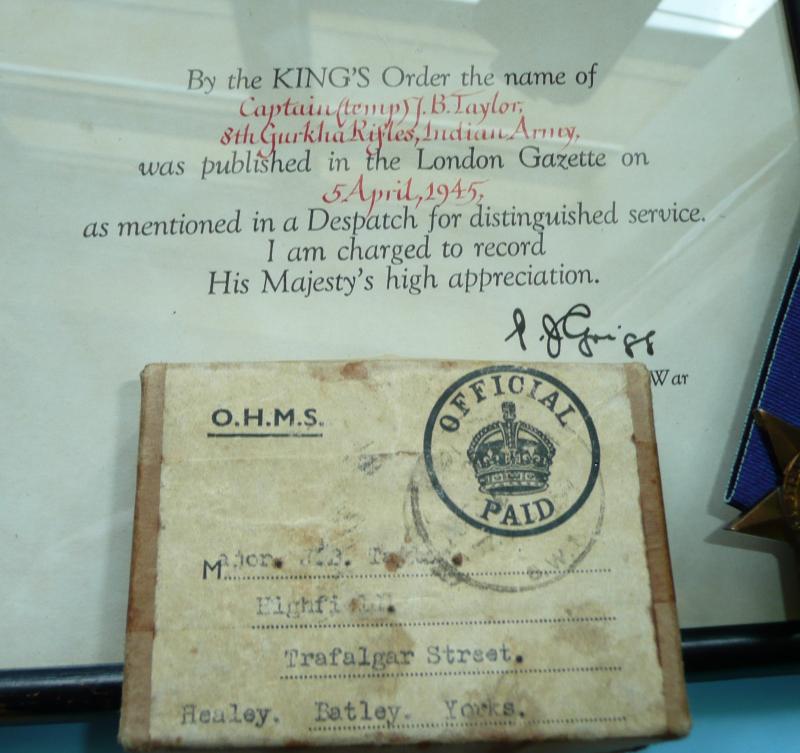 By the KING'S Order the name of
Captain (temp) J.B. Taylor,
8th Gurkha Rifles, Indian Army,
was published in the London Gazette on
5 April, 1945,
as mentioned in a Despatch for distinguished service.
I am charged to record
His Majesty's high appreciation.
P.J. Grigg
War
O.H.M.S.
OFFICIAL
PAID
Major. J.B. Taylor.
Highfield.
Trafalgar Street.
Healey. Batley. Yorks.